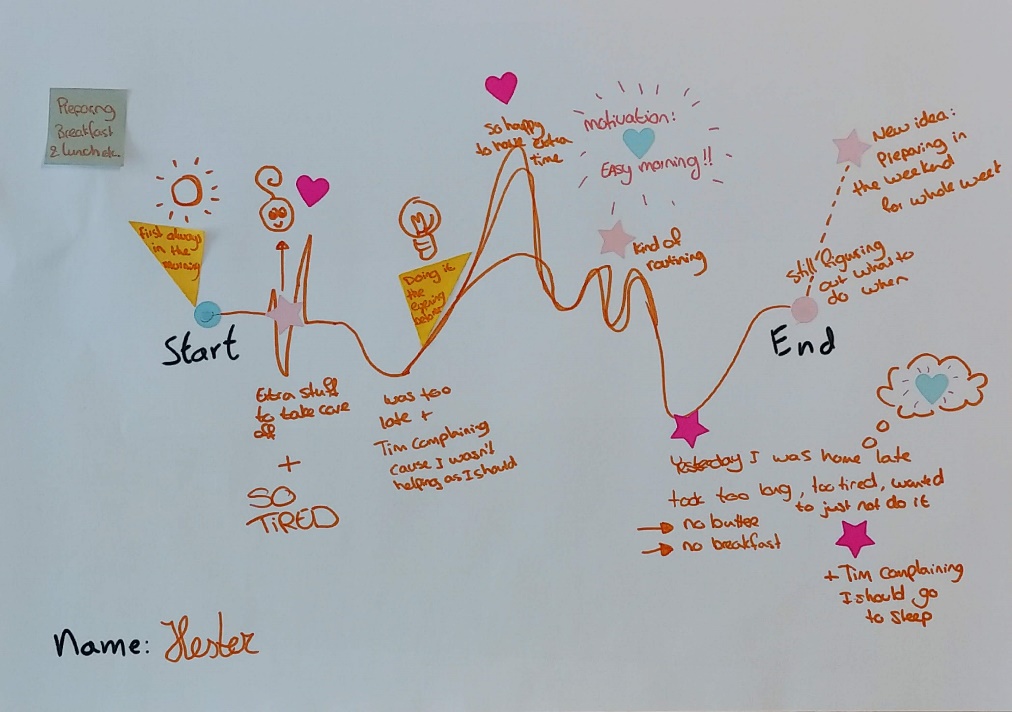 Preparing
Breakfast
& lunch etc.
First always
in the
morning
Start
Extra stuff
to take care
off
+
SO
TiRED
was too
late +
Tim complaining
cause I wasn't
helping as I should
Doing it
the
evening
before
so happy
to have extra
time
motivation:
EASy morning!!
kind of
routining
Yesterday I was home late
took too long, too tired, wanted
to just not do it
→ no butter
→ no breakfast
+ Tim complaining
I should go
to sleep
End
still figuring
out what to
do when
New idea:
Preparing in
the weekend
for whole week
Name: Hester